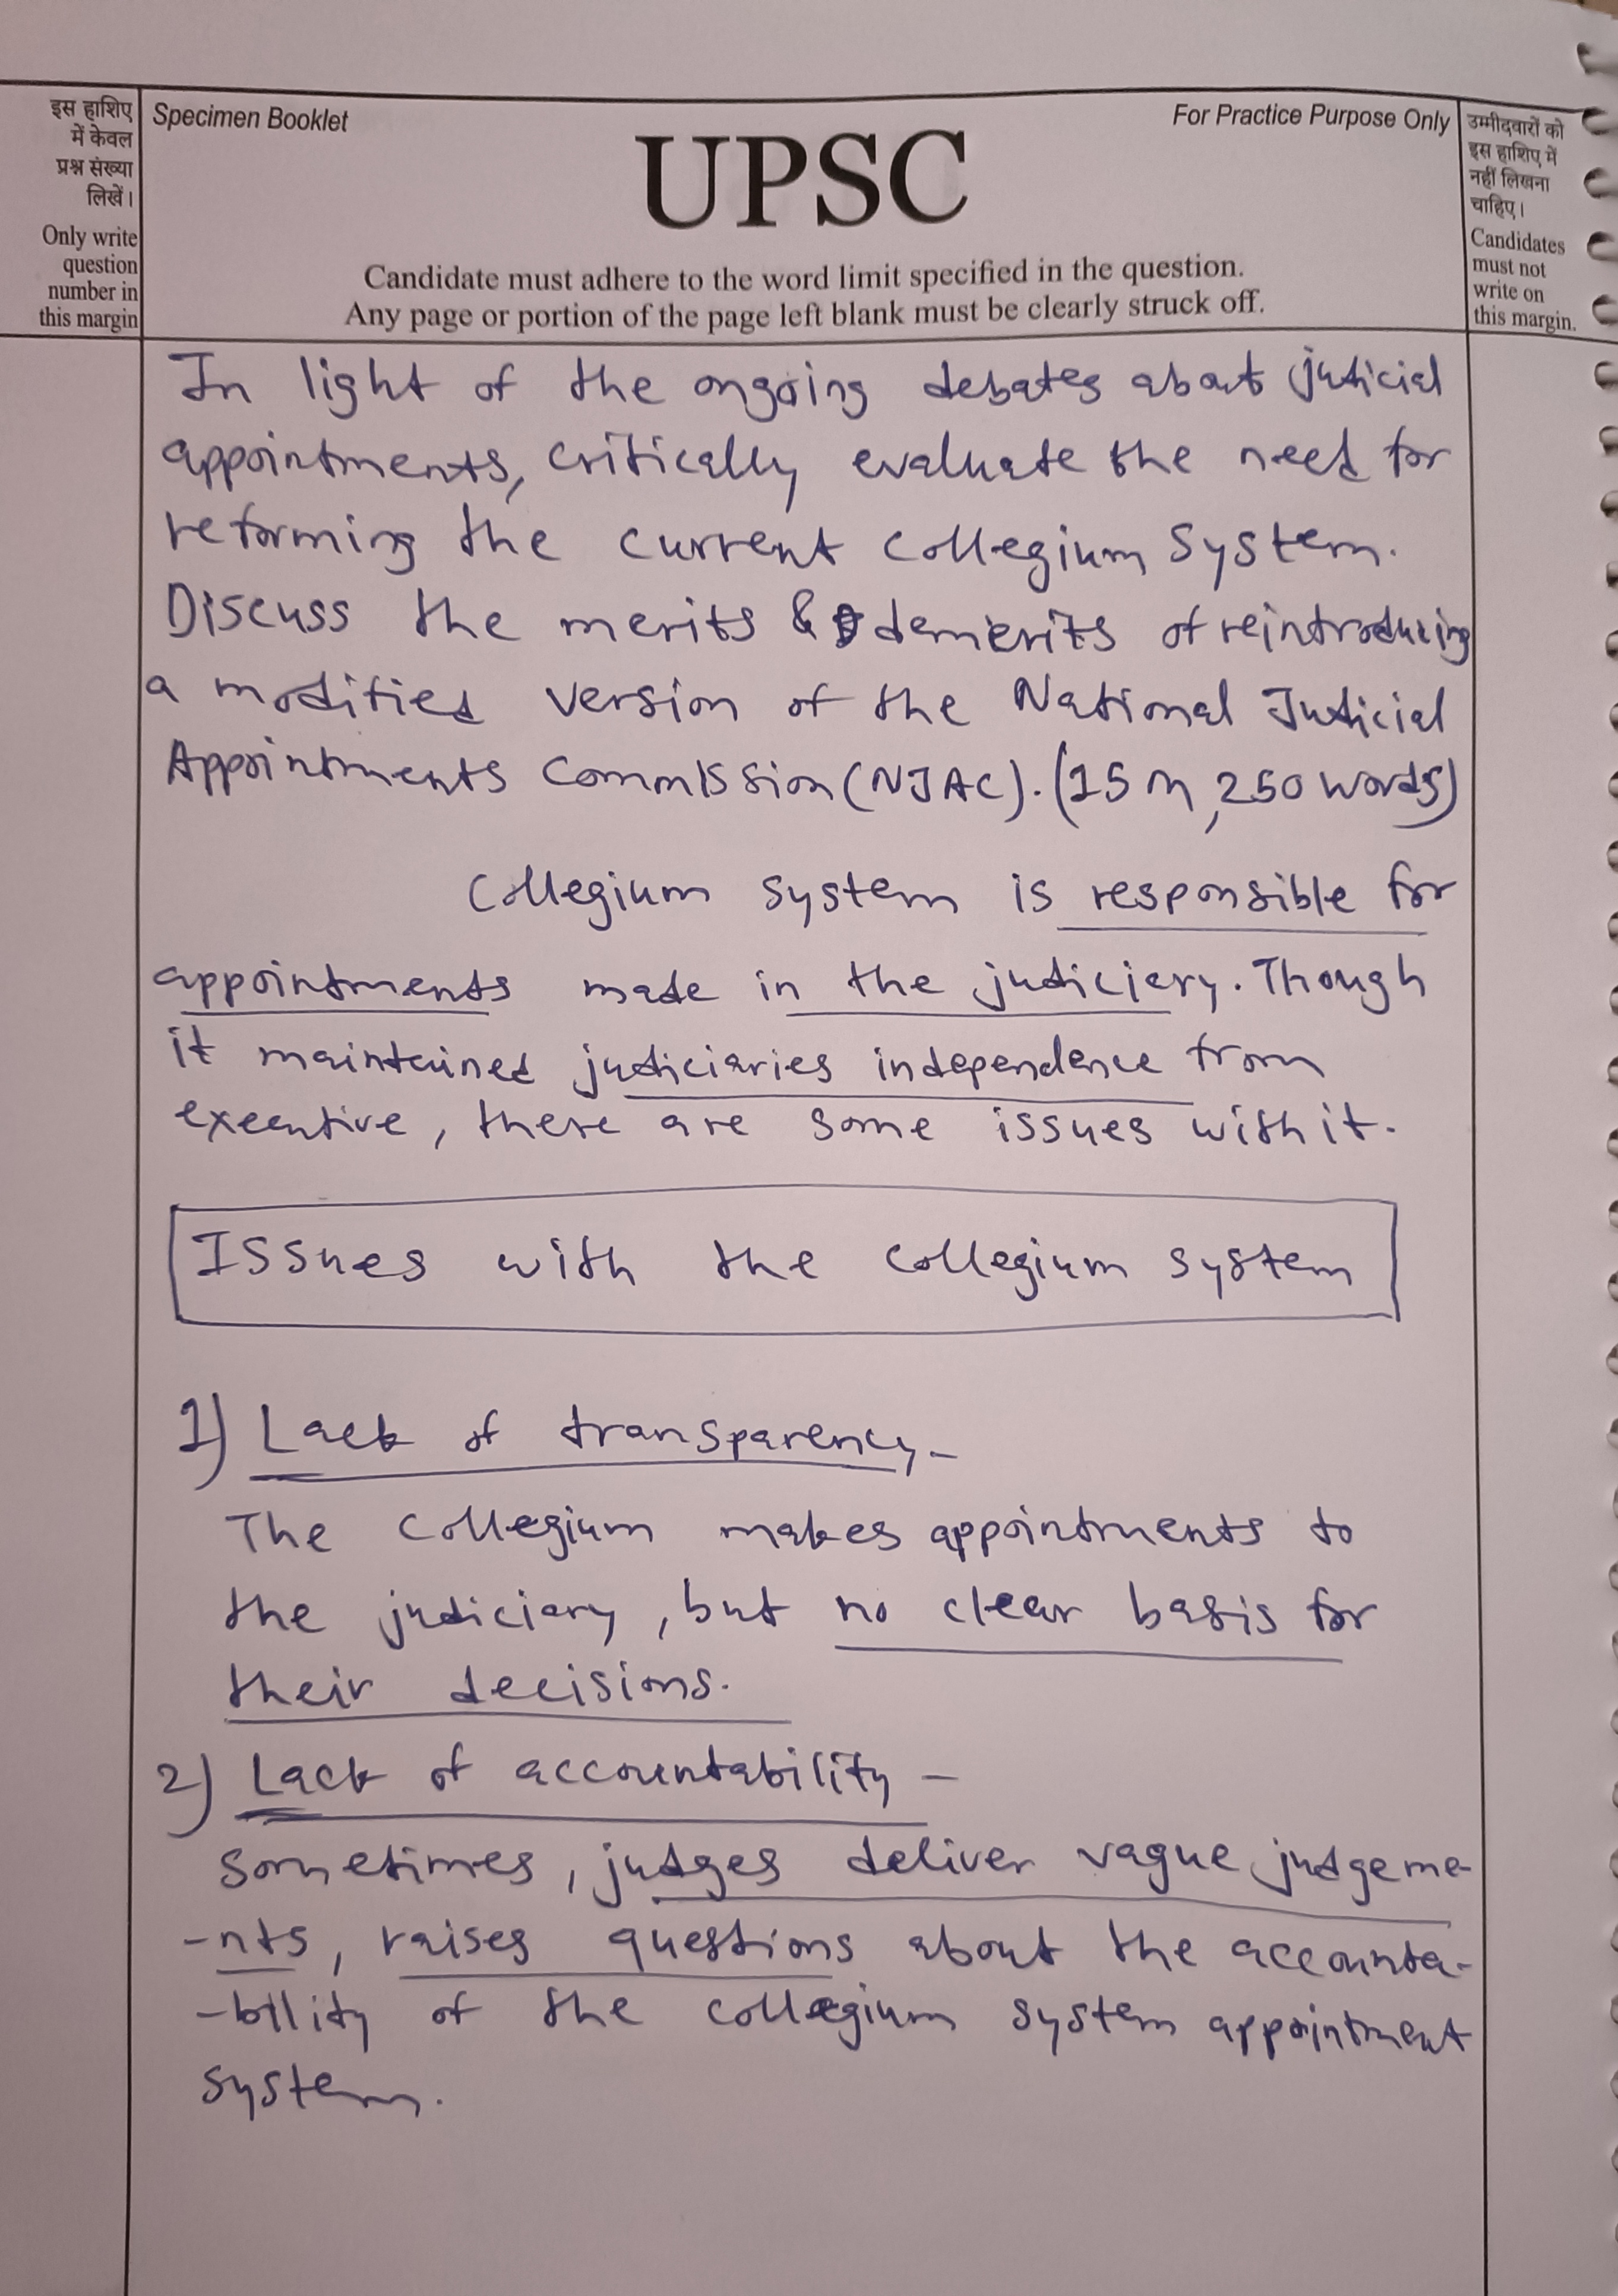 इस हाशिए
में केवल
प्रश्न संख्या
लिखें।
Only write
question
number in
this margin
Specimen Booklet
For Practice Purpose Only
UPSC
Candidate must adhere to the word limit specified in the question.
Any page or portion of the page left blank must be clearly struck off.
उम्मीदवारों को
इस हाशिए में
नहीं लिखना
चाहिए।
Candidates
must not
write on
this margin.
In light of the ongoing debates about judicial
appointments, critically evaluate the need for
reforming the current collegium system.
Discuss the merits & demerits of reintroducing
a modified version of the National Judicial
Appointments Commission (NJAC). (15 m, 250 words)
Collegium system is responsible for
appointments made in the judiciary. Though
it maintained judiciaries independence from
executive, there are some issues with it.
Issues with the collegium system
1) Lack of transparency -
The collegium makes appointments to
the judiciary, but no clear basis for
their decisions.
2) Lack of accountability -
Sometimes, judges deliver vague judgeme-
-nts, raises questions about the accounta-
-bility of the collegium system appointment
system.